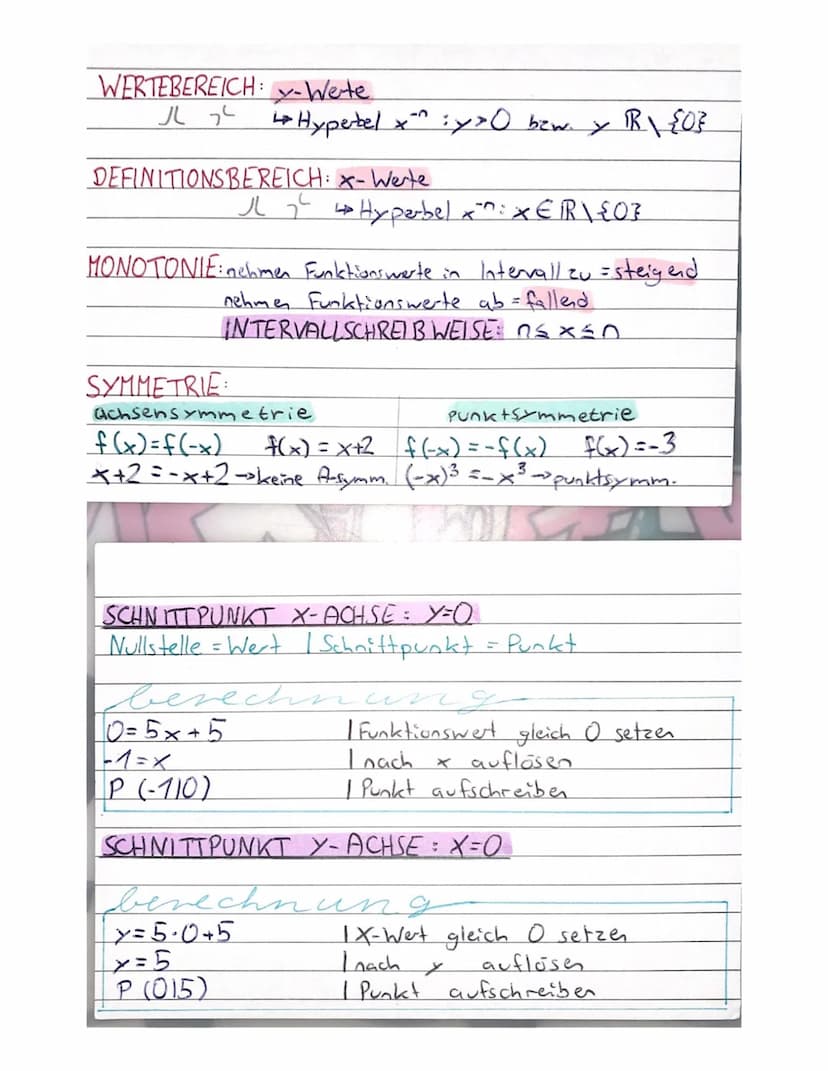 WERTEBEREICH: y-Werte
↳ Hyperbel x⁻ⁿ : y>0 bzw. y ℝ\{0}
DEFINITIONSBEREICH: x-Werte
↳ Hyperbel x⁻ⁿ: x ∈ ℝ\{0}
MONOTONIE: nehmen Funktionswerte in Intervall zu = steigend
nehmen Funktionswerte ab = fallend
INTERVALLSCHREIBWEISE: n ≤ x ≤ n
SYMMETRIE:
achsensymmetrie punktsymmetrie
f(x)=f(-x) f(x) = x+2 f(-x) = -f(x) f(x) = -3
x+2 = -x+2 → keine A-symm. (-x)³ = -x³ → punktsymm.
SCHNITTPUNKT X-ACHSE: Y=0
Nullstelle = Wert | Schnittpunkt = Punkt
berechnung
0 = 5x + 5 | Funktionswert gleich 0 setzen
-1 = x | nach x auflösen
P (-1|0) | Punkt aufschreiben
SCHNITTPUNKT Y-ACHSE: X=0
berechnung
y = 5·0+5 | X-Wert gleich 0 setzen
y = 5 | nach y auflösen
P (0|5) | Punkt aufschreiben